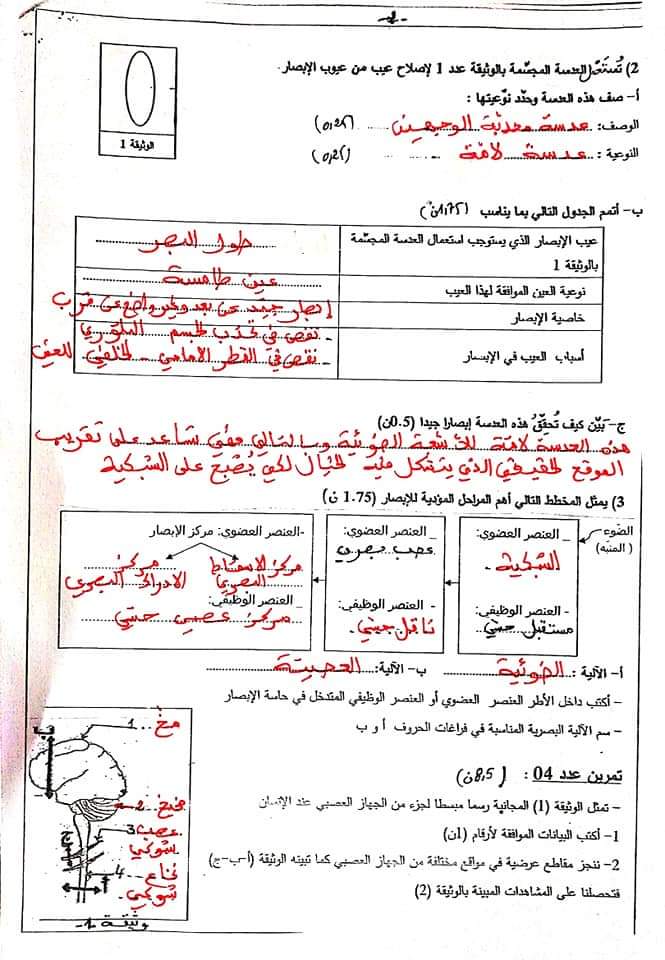 -2-
2) تُستَعمَل العدسة المجسّمة بالوثيقة عدد 1 لإصلاح عيب من عيوب الإبصار.
أ- صف هذه العدسة وحدّد نوعيتها :
الوصف: عدسة محدبة الوجهين (0,25)
النوعية : عدسة لامّة (0,25)
الوثيقة 1
ب- أتمم الجدول التالي بما يناسب (1,75ن)
عيب الإبصار الذي يستوجب استعمال العدسة المجسّمة بالوثيقة 1
طول البصر
نوعية العين الموافقة لهذا العيب
عين طامسة
خاصية الإبصار
إبصار جيّد عن بعد وغير واضح عن قرب
أسباب العيب في الإبصار
- نقص في تحدّب الجسم البلوري
- نقص في القطر الأمامي - الخلفي للعين
ج- بيّن كيف تُحقِّقُ هذه العدسة إبصارا جيدا (0.5ن)
هذه العدسة لامّة للأشعة الضوئية وبالتالي فهي تساعد على تقريب
الموقع الحقيقي الذي يتشكل فيه الخيال لكي يُطبع على الشبكية
3) يمثل المخطط التالي أهم المراحل المؤدية للإبصار (1.75 ن)
الضوء
( المنبه)
_ العنصر العضوي:
الشبكية.
- العنصر الوظيفي:
مستقبل حسّي
_ العنصر العضوي:
عصب بصري
- العنصر الوظيفي:
ناقل حسّي.
-العنصر العضوي: مركز الإبصار
مركز الإسقاط البصري
مركز الإدراك البصري
_ العنصر الوظيفي:
مركز عصبي حسّي
أ- الآلية : الضوئية ب- الآلية: العصبية
- أكتب داخل الأطر العنصر العضوي أو العنصر الوظيفي المتدخل في حاسة الإبصار
- سم الآلية البصرية المناسبة في فراغات الحروف أ و ب
تمرين عدد 04 : (8,5ن)
- تمثل الوثيقة (1) المجانية رسما مبسطا لجزء من الجهاز العصبي عند الإنسان
1- أكتب البيانات الموافقة لأرقام (1ن)
2- ننجز مقاطع عرضية في مواقع مختلفة من الجهاز العصبي كما تبينه الوثيقة (أ-ب-ج)
فتحصلنا على المشاهدات المبينة بالوثيقة (2)
1 مخ
ب
2 مخيخ
3 عصب
شوكي
4 نخاع
شوكي.
وثيقة -1-